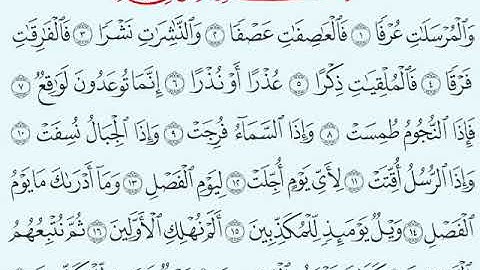 وَٱلۡمُرۡسَلَٰتِ عُرۡفٗا ١ فَٱلۡعَٰصِفَٰتِ عَصۡفٗا ٢ وَٱلنَّٰشِرَٰتِ نَشۡرٗا ٣ فَٱلۡفَٰرِقَٰتِ
فَرۡقٗا ٤ فَٱلۡمُلۡقِيَٰتِ ذِكۡرًا ٥ عُذۡرًا أَوۡ نُذۡرًا ٦ إِنَّمَا تُوعَدُونَ لَوَٰقِعٞ ٧
فَإِذَا ٱلنُّجُومُ طُمِسَتۡ ٨ وَإِذَا ٱلسَّمَآءُ فُرِجَتۡ ٩ وَإِذَا ٱلۡجِبَالُ نُسِفَتۡ ١٠
وَإِذَا ٱلرُّسُلُ أُقِّتَتۡ ١١ لِأَيِّ يَوۡمٍ أُجِّلَتۡ ١٢ لِيَوۡمِ ٱلۡفَصۡلِ ١٣ وَمَآ أَدۡرَىٰكَ مَا يَوۡمُ
ٱلۡفَصۡلِ ١٤ وَيۡلٞ يَوۡمَئِذٖ لِّلۡمُكَذِّبِينَ ١٥ أَلَمۡ نُهۡلِكِ ٱلۡأَوَّلِينَ ١٦ ثُمَّ نُتۡبِعُهُمُ